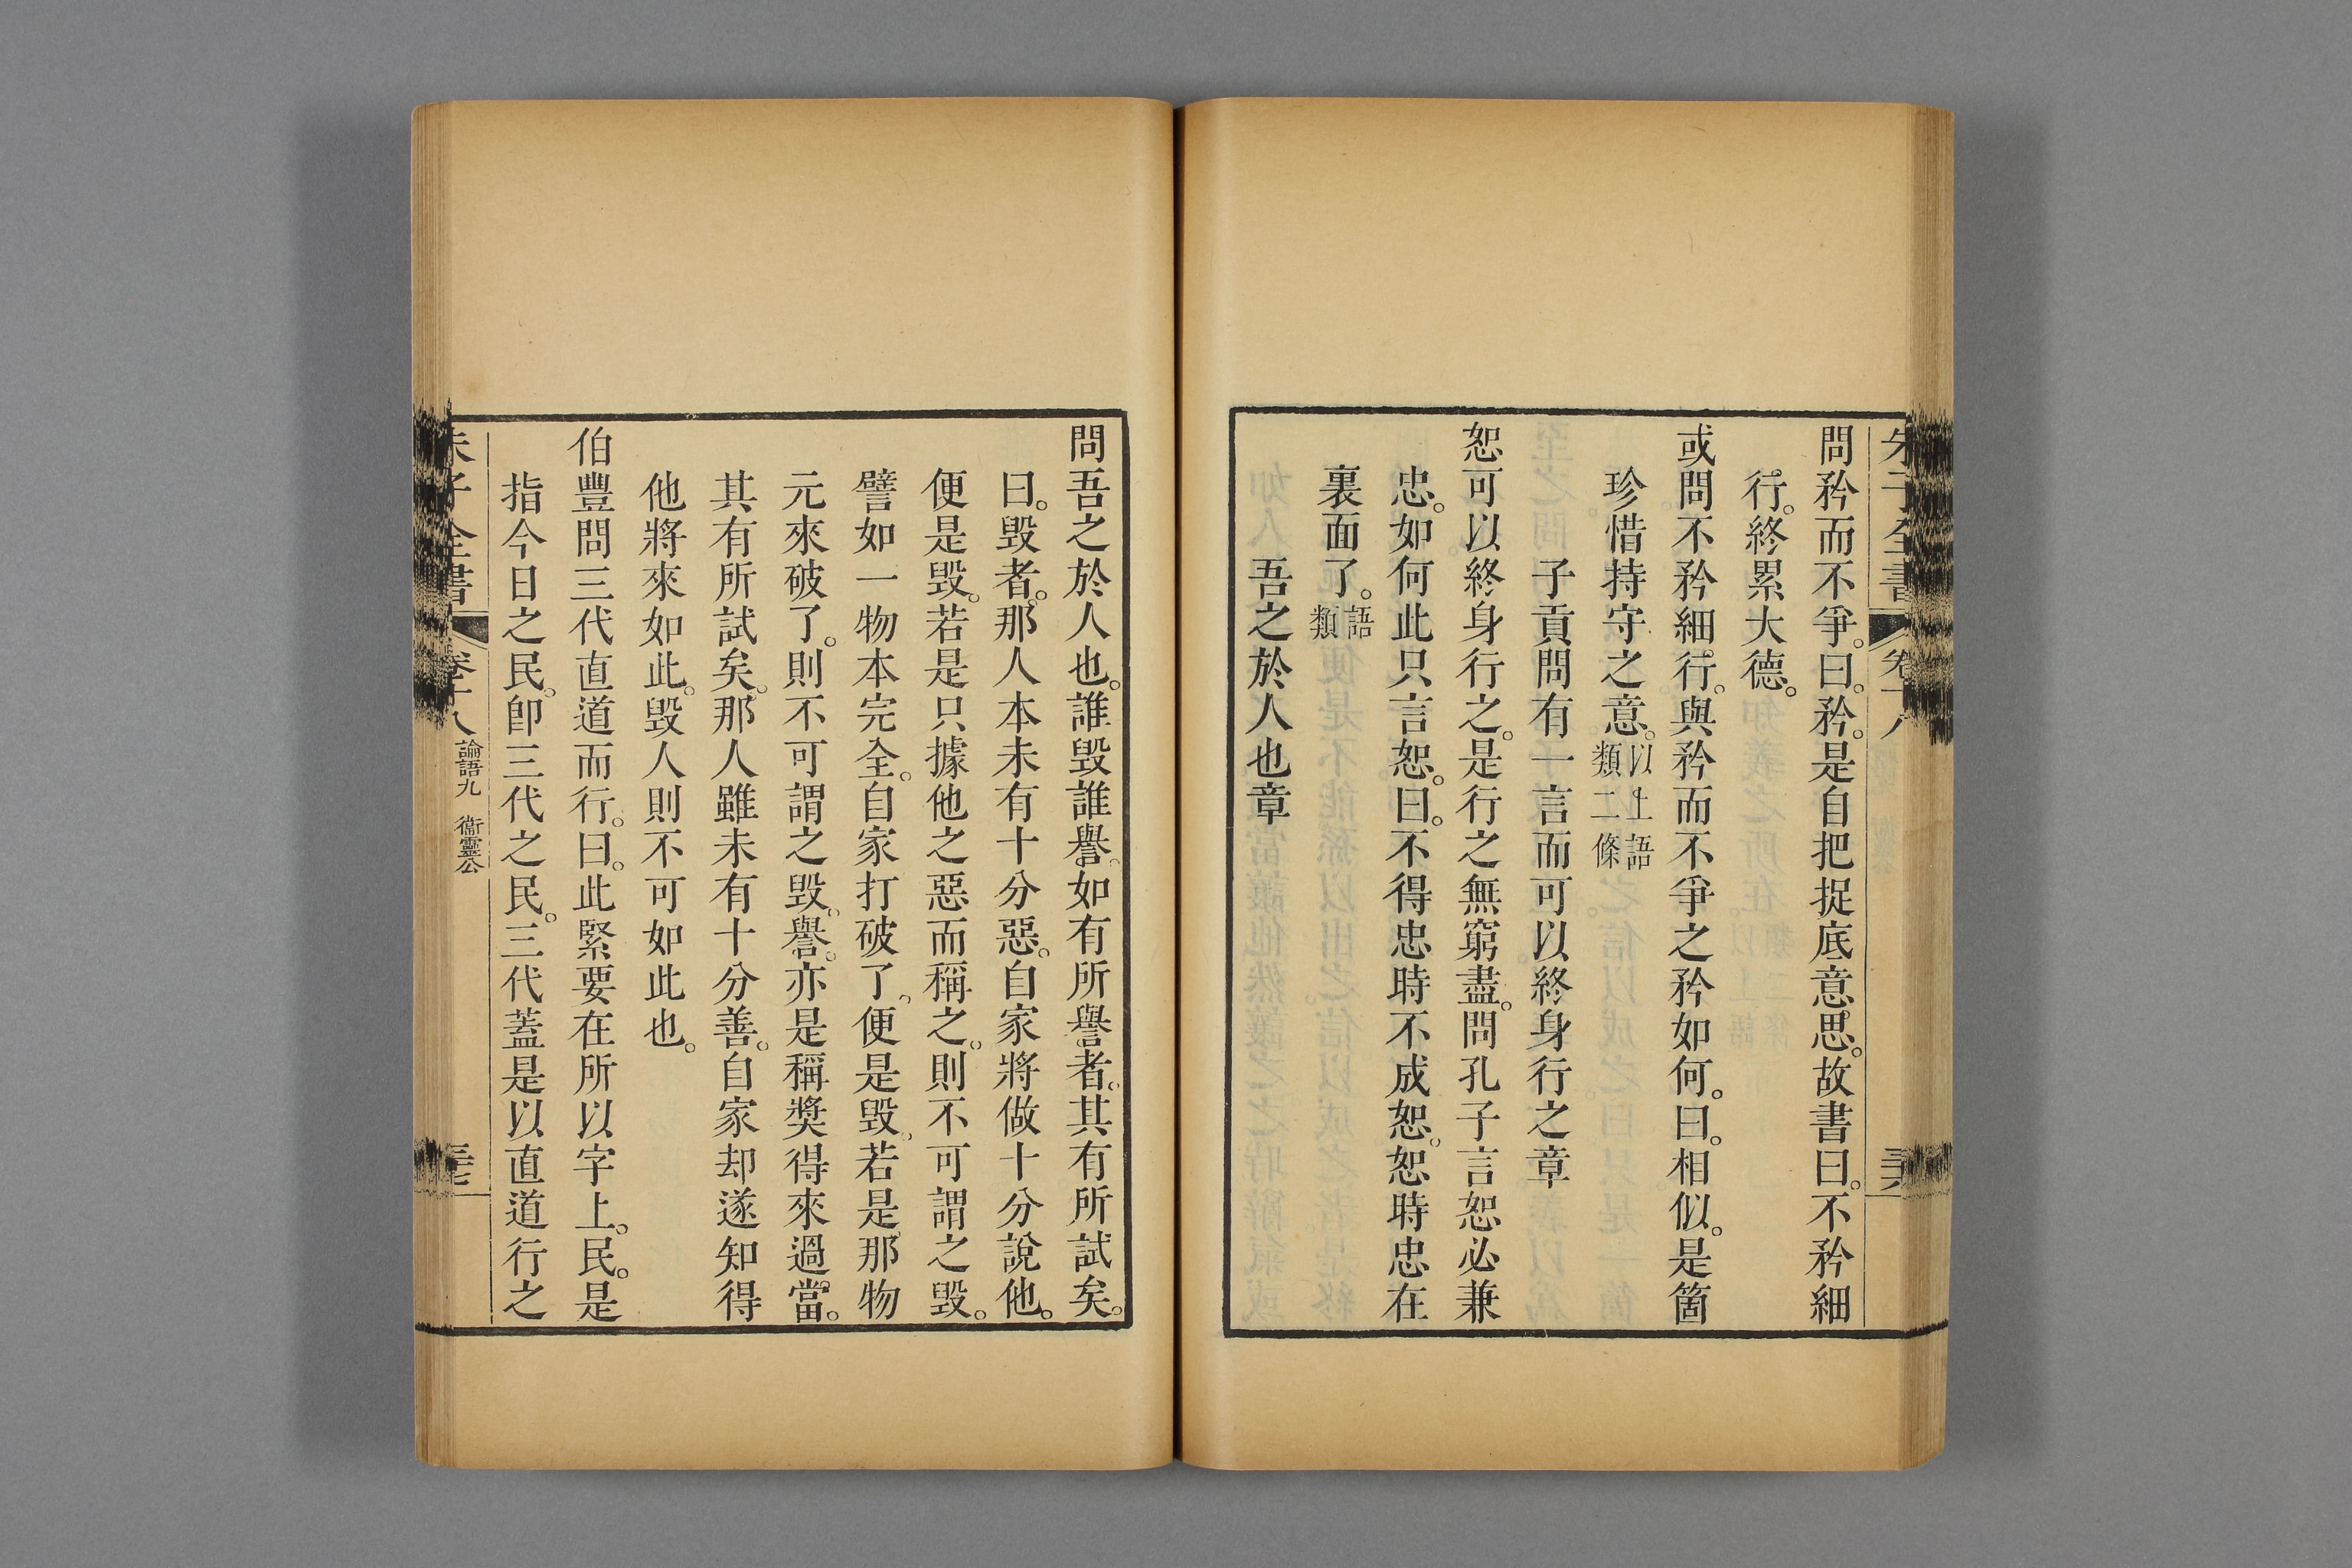 朱子全書 卷十八
問矜而不爭。曰。矜。是自把捉底意思。故書曰。不矜細
行。終累大德。
或問不矜細行。與矜而不爭之矜如何。曰。相似。是箇
珍惜持守之意。以上語類二條
子貢問有一言而可以終身行之章
恕可以終身行之。是行之無窮盡。問孔子言恕必兼
忠。如何此只言恕。曰。不得忠時不成恕。恕時忠在
裏面了。語類
吾之於人也章
問吾之於人也。誰毀誰譽。如有所譽者。其有所試矣。
曰。毀者。那人本未有十分惡。自家將做十分說他。
便是毀。若是只據他之惡而稱之。則不可謂之毀。
譬如一物本完全。自家打破了。便是毀。若是那物
元來破了。則不可謂之毀。譽。亦是稱獎得來過當。
其有所試矣。那人雖未有十分善。自家却遂知得
他將來如此。毀人則不可如此也。
伯豐問三代直道而行。曰。此緊要在所以字上。民。是
指今日之民。卽三代之民。三代蓋是以直道行之
朱子全書 卷十八 論語九 衞靈公